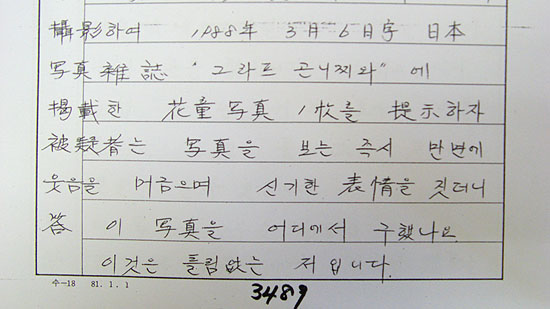 攝影하여 1988年 3月 6日字 日本
写真雜誌 "그라프 곤니찌와" 에
揭載한 花童写真 1枚를 提示하자
被疑者는 写真을 보는 즉시 만면에
웃음을 머금으며 신기한 表情을 짓더니
答 이 写真을 어디에서 구했나요
이것은 틀림없는 저입니다.
수-18 81. 1. 1
3489